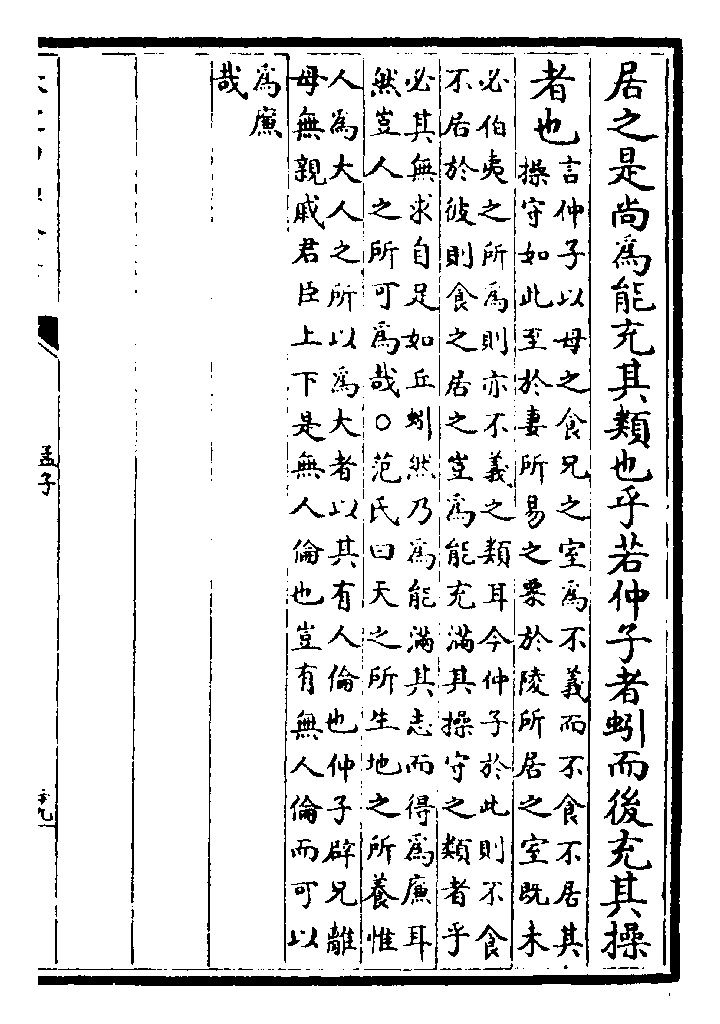 居之是尚爲能充其類也乎若仲子者蚓而後充其操
者也
言仲子以母之食兄之室爲不義而不食不居其
操守如此至於妻所易之粟於陵所居之室既未
必伯夷之所爲則亦不義之類耳今仲子於此則不食
不居於彼則食之居之豈爲能充滿其操守之類者乎
必其無求自足如丘蚓然乃爲能滿其志而得爲廉耳
然豈人之所可爲哉○范氏曰天之所生地之所養惟
人爲大人之所以爲大者以其有人倫也仲子辟兄離
母無親戚君臣上下是無人倫也豈有無人倫而可以
爲廉
哉
孟子